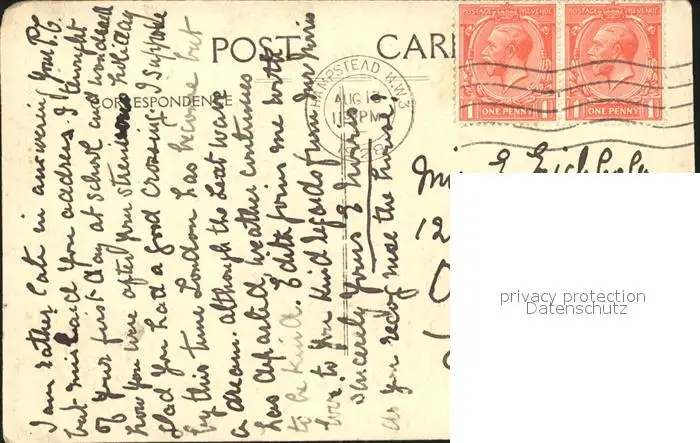 POST CARD
CORRESPONDENCE
HAMPSTEAD N.W.3
AUG 1
PM
POSTAGE REVENUE
1 ONE PENNY 1
POSTAGE REVENUE
1 ONE PENNY 1
I am rather late in answering your P.C.
but mislaid your address. I thought
of your first day at school and wondered
how you were after your strenuous holiday
Glad you had a good crossing. I suppose
by this time London has become but
a dream. although the heat wave
has departed the weather continues
to be kind. Edith joins me with
to you kind regards from
Sincerely Yours E Norris
as you recognise the house
12
privacy protection
Datenschutz